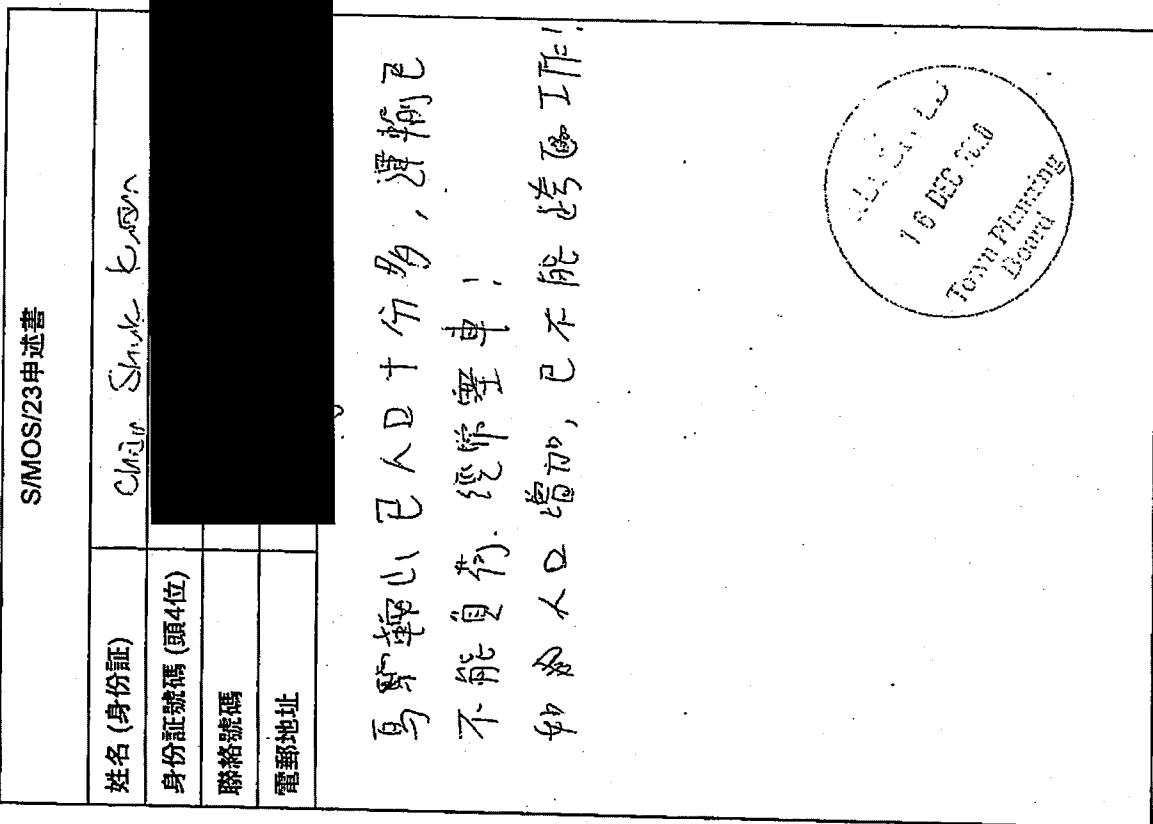 S/MOS/23申述書
姓名 (身份証) Chan Shuk kwan
身份証號碼 (頭4位)
聯絡號碼
電郵地址
馬鞍山已人口十份多，運輸已
不能負荷.經常塞車！
如多人口增加，已不能跨區工作！
16 DEC
Town Planning
Board